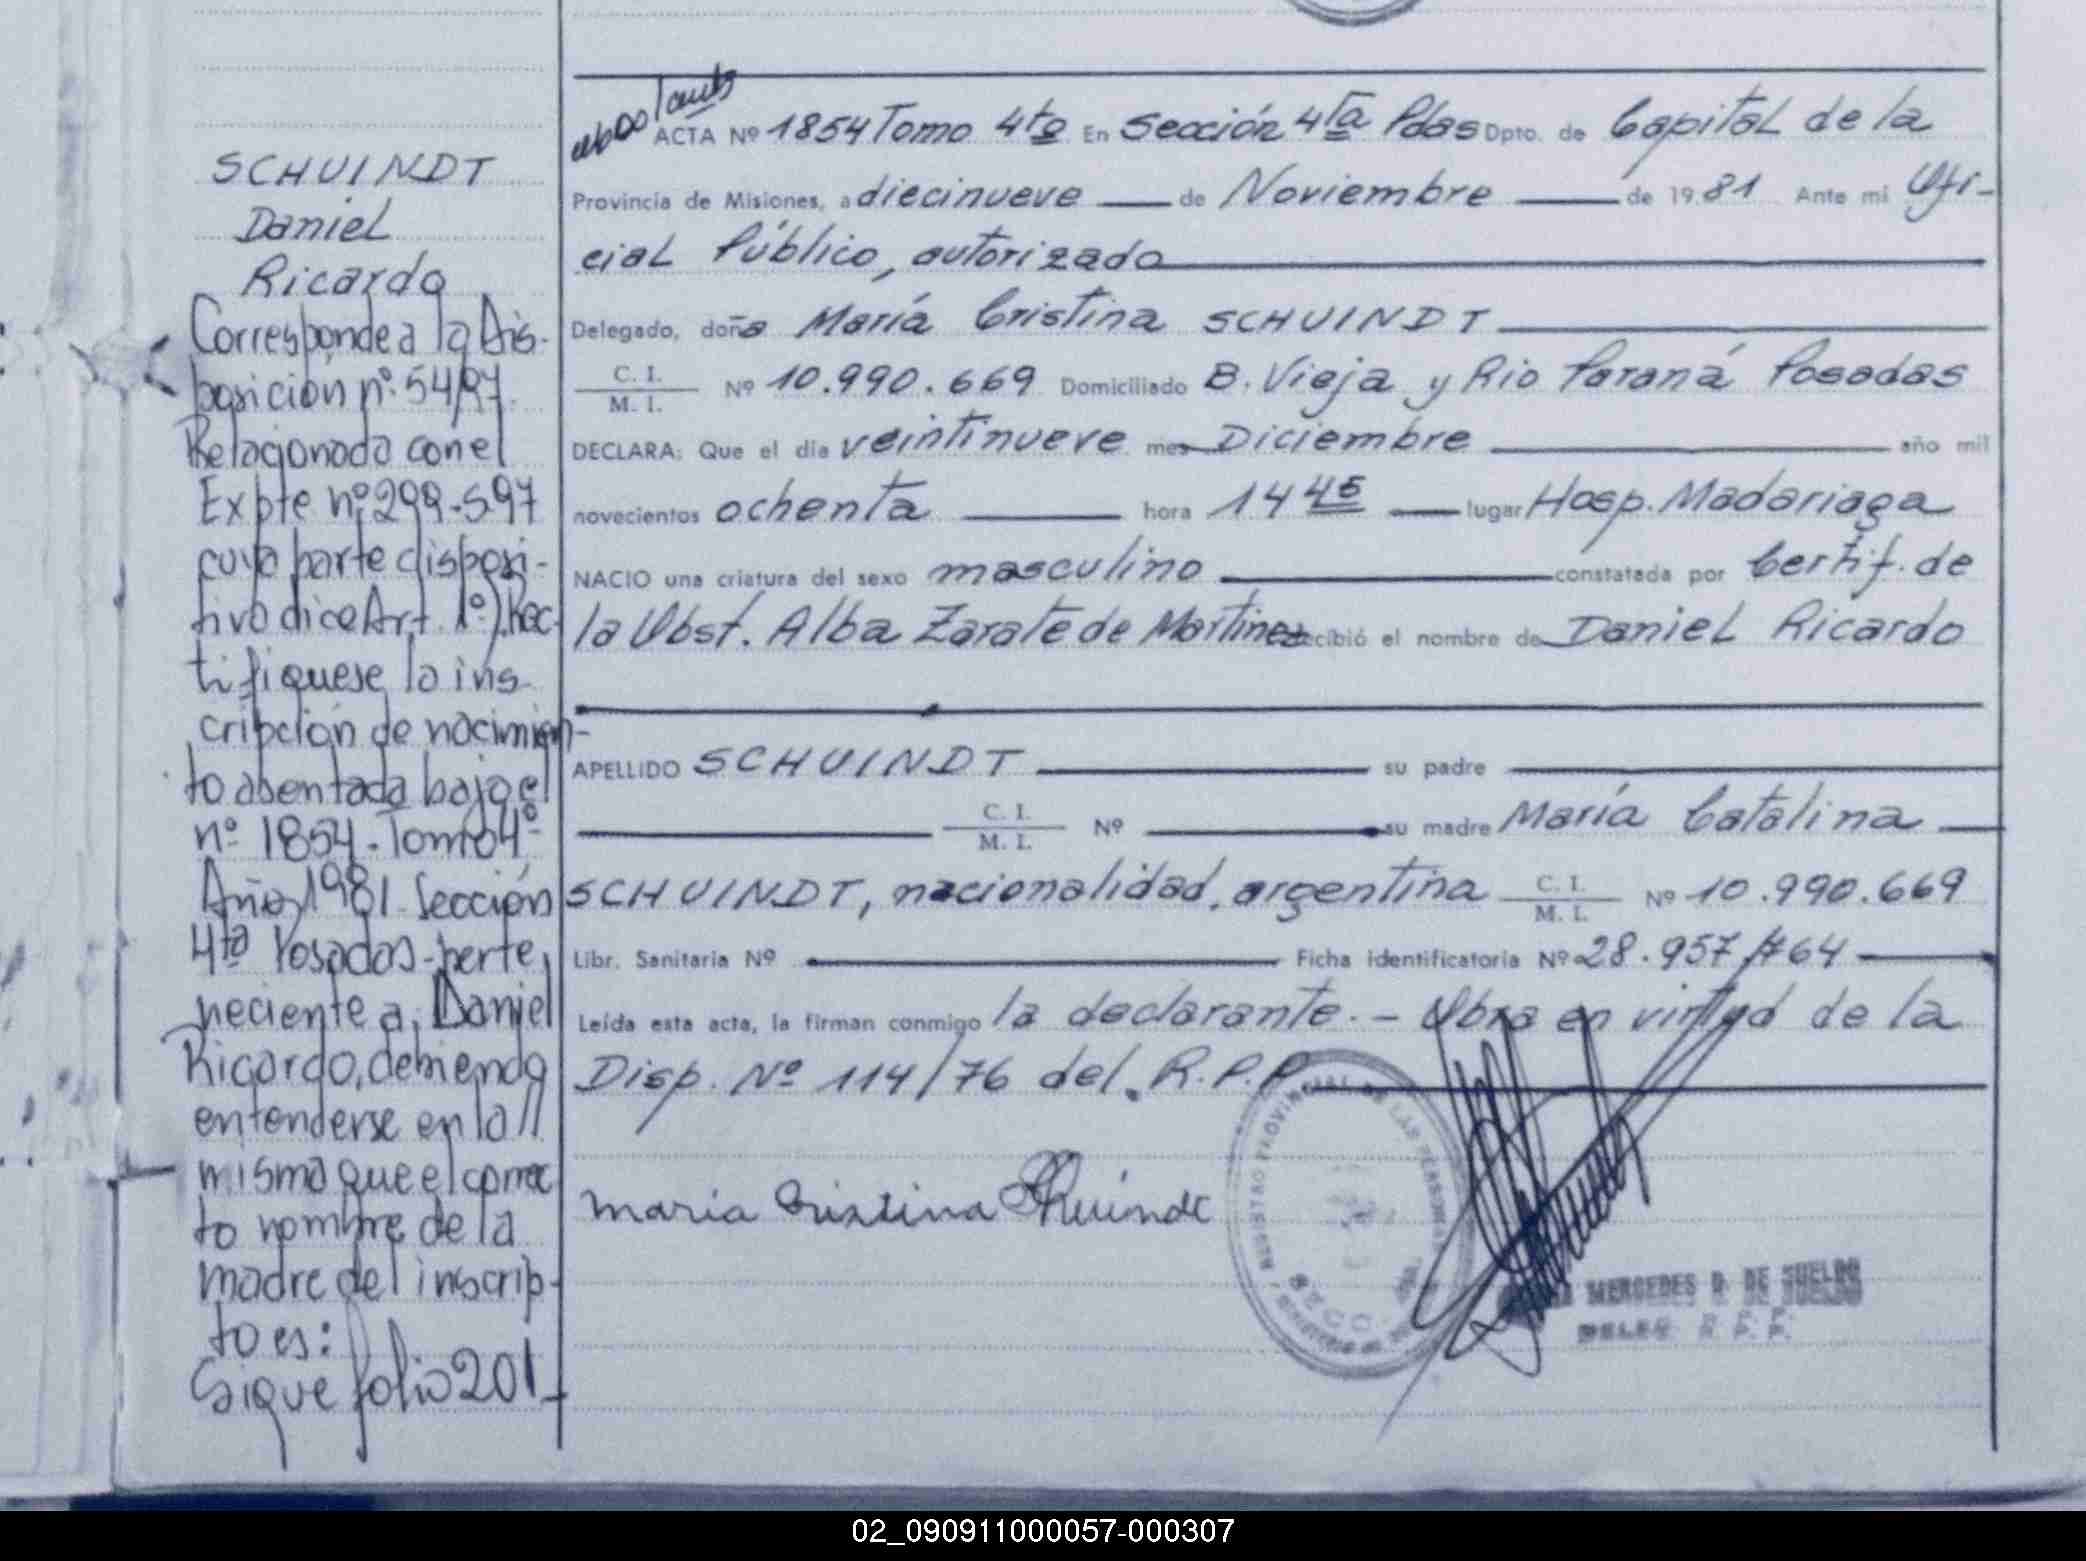 SCHUINDT
Daniel
Ricardo
Corresponde a la Dis-
posición nº 54/97.
Relacionada con el
Expte nº 299-S97
cuya parte disposi-
tiva dice Art. 1º) Rec-
tifiquese la ins-
cripción de nacimien-
to asentada bajo el
nº 1854. Tomo 4º
Año 1981. Sección
4ta Posadas-perte,
neciente a, Daniel
Ricardo, debiendo
entenderse en la //
misma que el correc
to nombre de la
madre del inscrip-
to es:
Sigue folio 201-
ACTA Nº 1854 Tomo 4to En Sección 4ta Pdas Dpto. de Capital de la
Provincia de Misiones, a diecinueve de Noviembre de 1981 Ante mi Ofi-
cial Público, autorizado
Delegado, doña María Cristina SCHUINDT
C. I.
M. I. Nº 10.990.669 Domiciliado B. Vieja y Rio Paraná Posadas
DECLARA: Que el día veintinueve mes Diciembre año mil
novecientos ochenta hora 14 45 lugar Hosp. Madariaga
NACIO una criatura del sexo masculino constatada por Certif. de
la Obst. Alba Zarate de Martinez recibió el nombre de Daniel Ricardo
APELLIDO SCHUINDT su padre
C. I.
M. I. Nº su madre María Catalina
SCHUINDT, nacionalidad, argentina C. I.
M. I. Nº 10.990.669
Libr. Sanitaria Nº Ficha identificatoria Nº 28.957.764
Leída esta acta, la firman conmigo la declarante. - Obra en virtud de la
Disp. Nº 114/76 del. R.P.P.
REGISTRO PROVINCIAL DE LAS PERSONAS
Maria Cristina Schuindt
MERCEDES D. DE SUELDO
DELEG R. P. P.
02_090911000057-000307